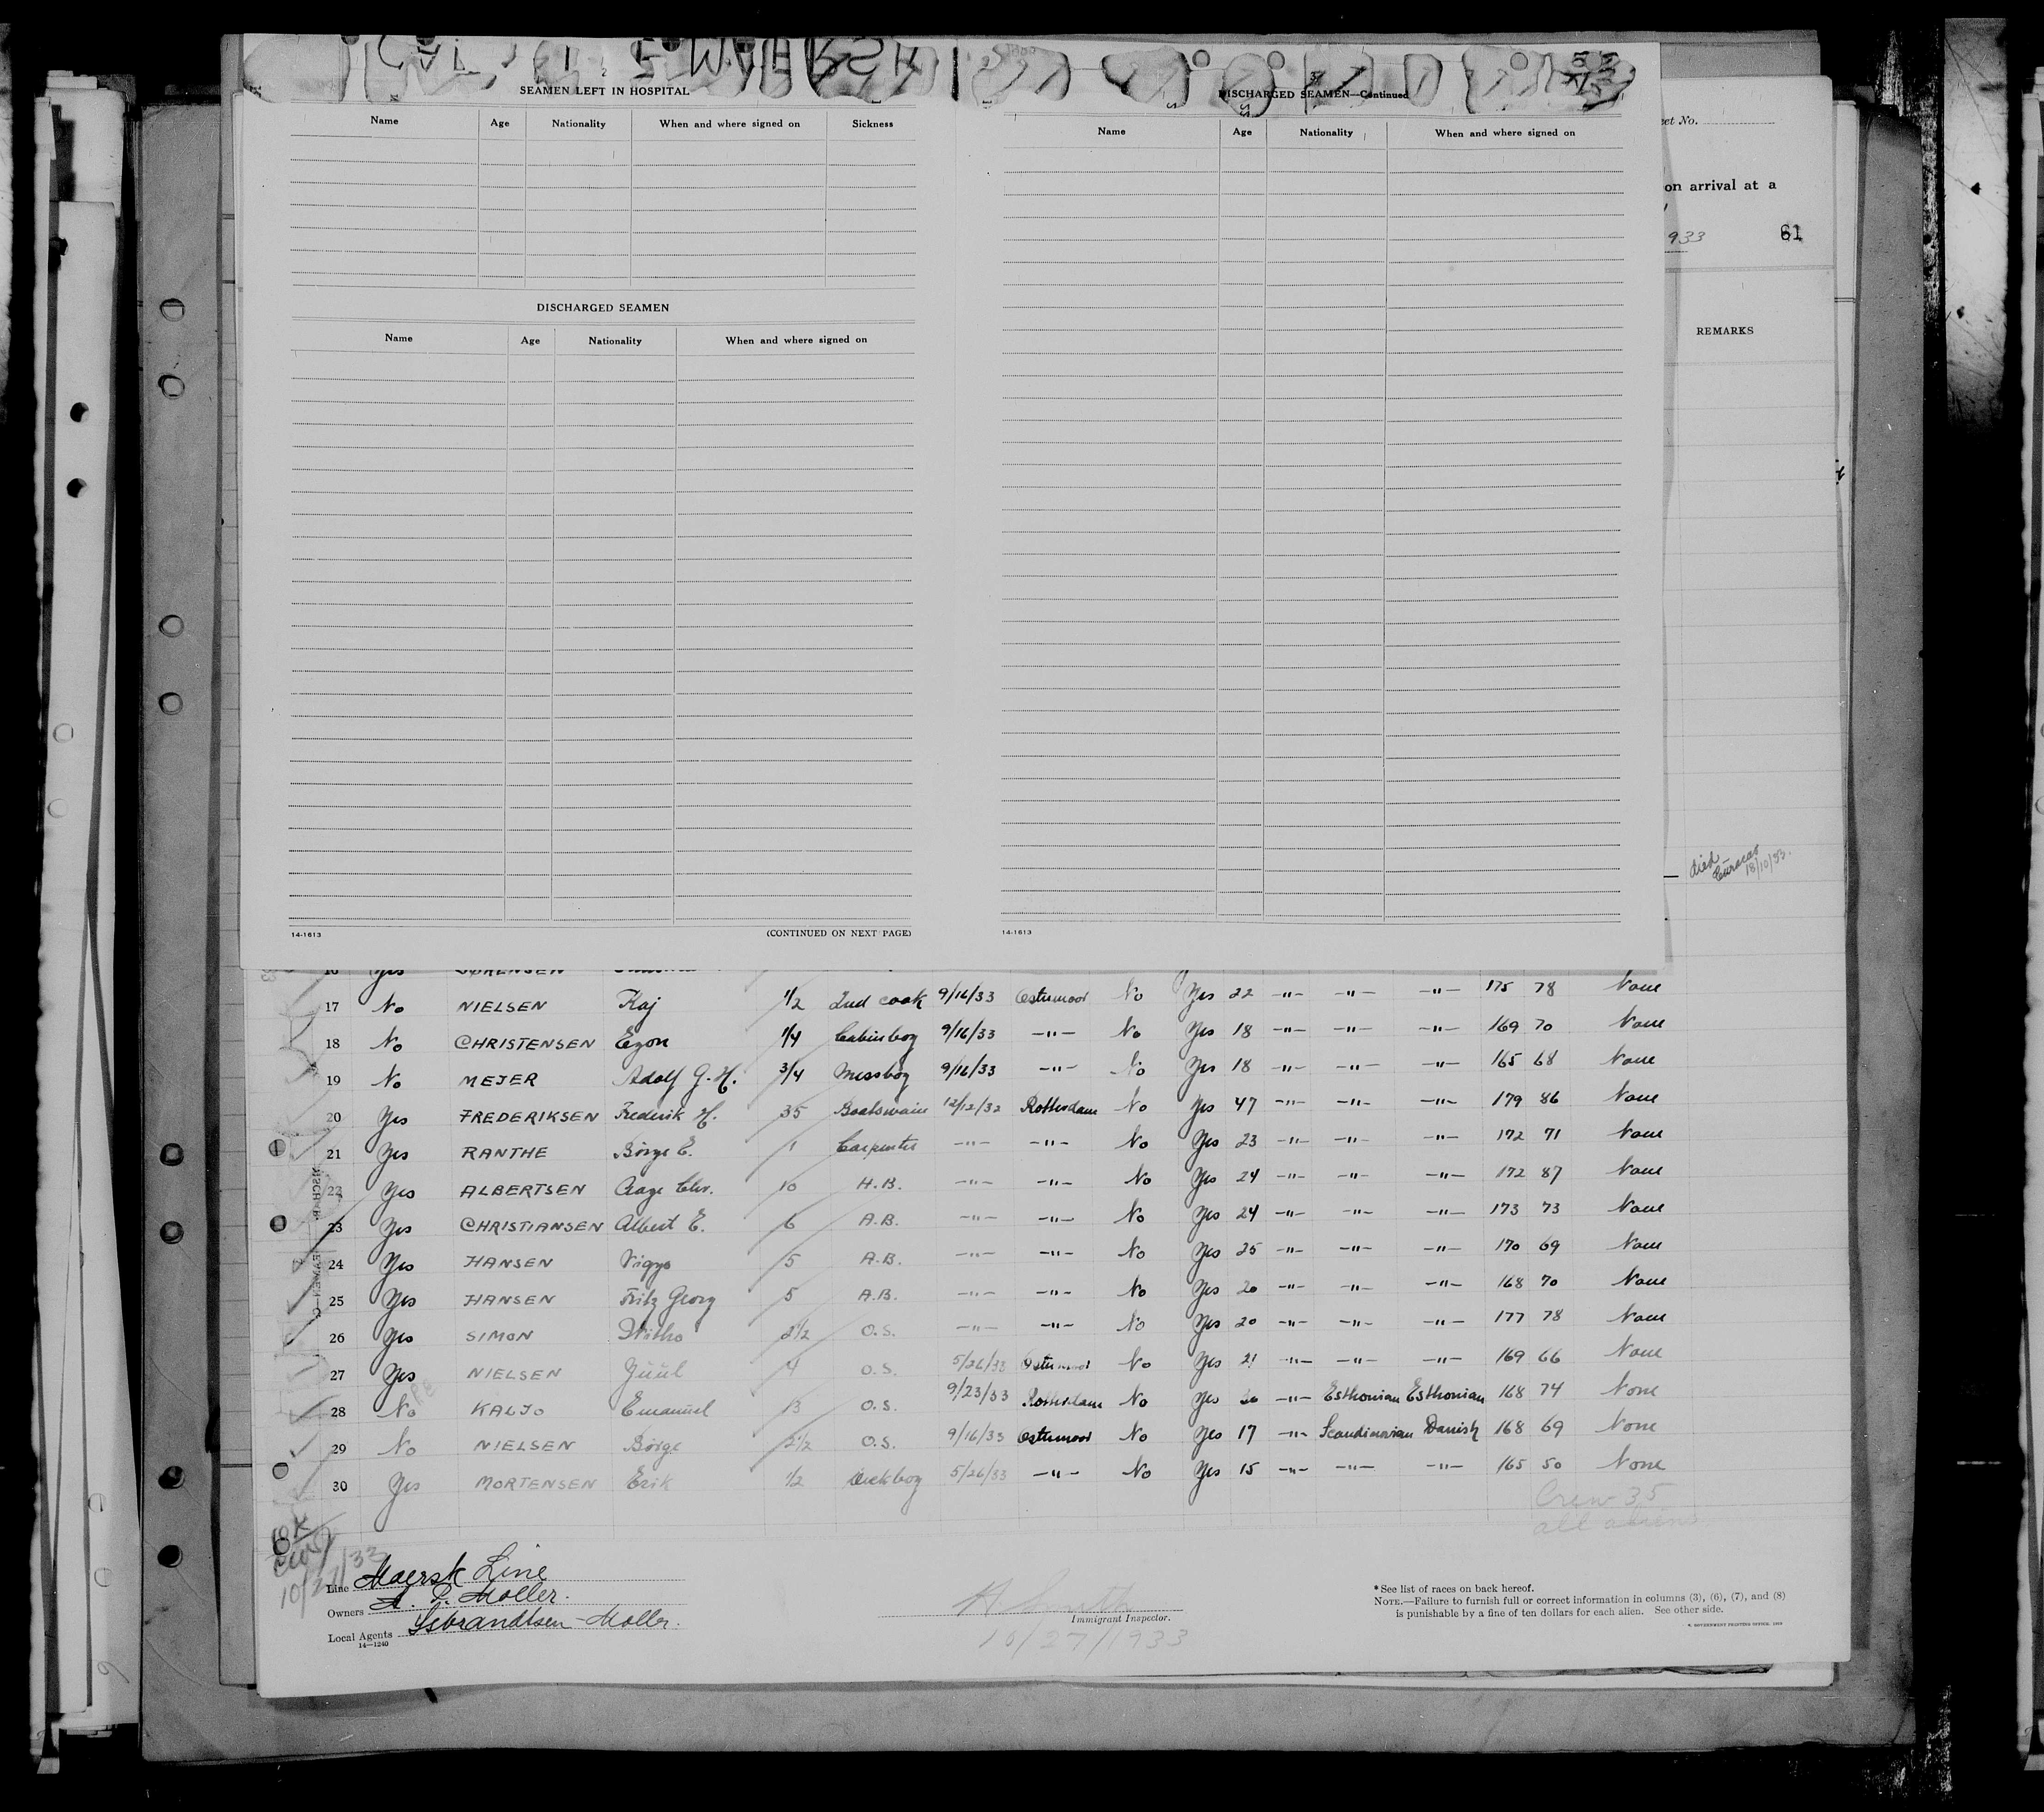 SEAMEN LEFT IN HOSPITAL
Name Age Nationality When and where signed on Sickness
DISCHARGED SEAMEN
Name Age Nationality When and where signed on
14-1613 (CONTINUED ON NEXT PAGE)
DISCHARGED SEAMEN—Continued
Name Age Nationality When and where signed on
14-1613
et No.
on arrival at a
933 61
REMARKS
died
Curacao
18/10/33.
16 Yes SØRENSEN
17 No NIELSEN Kaj 1/2 2nd cook 9/16/33 Ostermoor No Yes 22 -"- -"- -"- 175 78 None
18 No CHRISTENSEN Egon 1/4 Cabinboy 9/16/33 -"- No Yes 18 -"- -"- -"- 169 70 None
19 No MEJER Adolf G. H. 3/4 Messboy 9/16/33 -"- No Yes 18 -"- -"- -"- 165 68 None
20 Yes FREDERIKSEN Frederik H. 35 Boatswain 12/12/32 Rotterdam No Yes 47 -"- -"- -"- 179 86 None
21 Yes RANTHE Børge E. 1 Carpenter -"- -"- No Yes 23 -"- -"- -"- 172 71 None
22 Yes ALBERTSEN Aage Chr. 10 A.B. -"- -"- No Yes 24 -"- -"- -"- 172 87 None
23 Yes CHRISTIANSEN Albert E. 6 A.B. -"- -"- No Yes 24 -"- -"- -"- 173 73 None
24 Yes HANSEN Viggo 5 A.B. -"- -"- No Yes 25 -"- -"- -"- 170 69 None
25 Yes HANSEN Fritz Georg 5 A.B. -"- -"- No Yes 20 -"- -"- -"- 168 70 None
26 Yes SIMON 2 1/2 O.S. -"- -"- No Yes 20 -"- -"- -"- 177 78 None
27 Yes NIELSEN Juul 4 O.S. 5/26/33 Ostermoor No Yes 21 -"- -"- -"- 169 66 None
28 No KALJO Emanuel 13 O.S. 9/23/33 Rotterdam No Yes -"- Esthonian Esthonian 168 74 None
29 No NIELSEN Børge 2 1/2 O.S. 9/16/33 Ostermoor No Yes 17 -"- Scandinavian Danish 168 69 None
30 Yes MORTENSEN Erik 1/2 Deckboy 5/26/33 -"- No Yes 15 -"- -"- -"- 165 50 None
Crew 35
all aliens
Line Maersk Line
Owners A. P. Moller.
Local Agents Isbrandtsen-Moller.
14—1240
H Smith
Immigrant Inspector.
10/27/1933
*See list of races on back hereof.
NOTE.—Failure to furnish full or correct information in columns (3), (6), (7), and (8)
is punishable by a fine of ten dollars for each alien. See other side.
GOVERNMENT PRINTING OFFICE